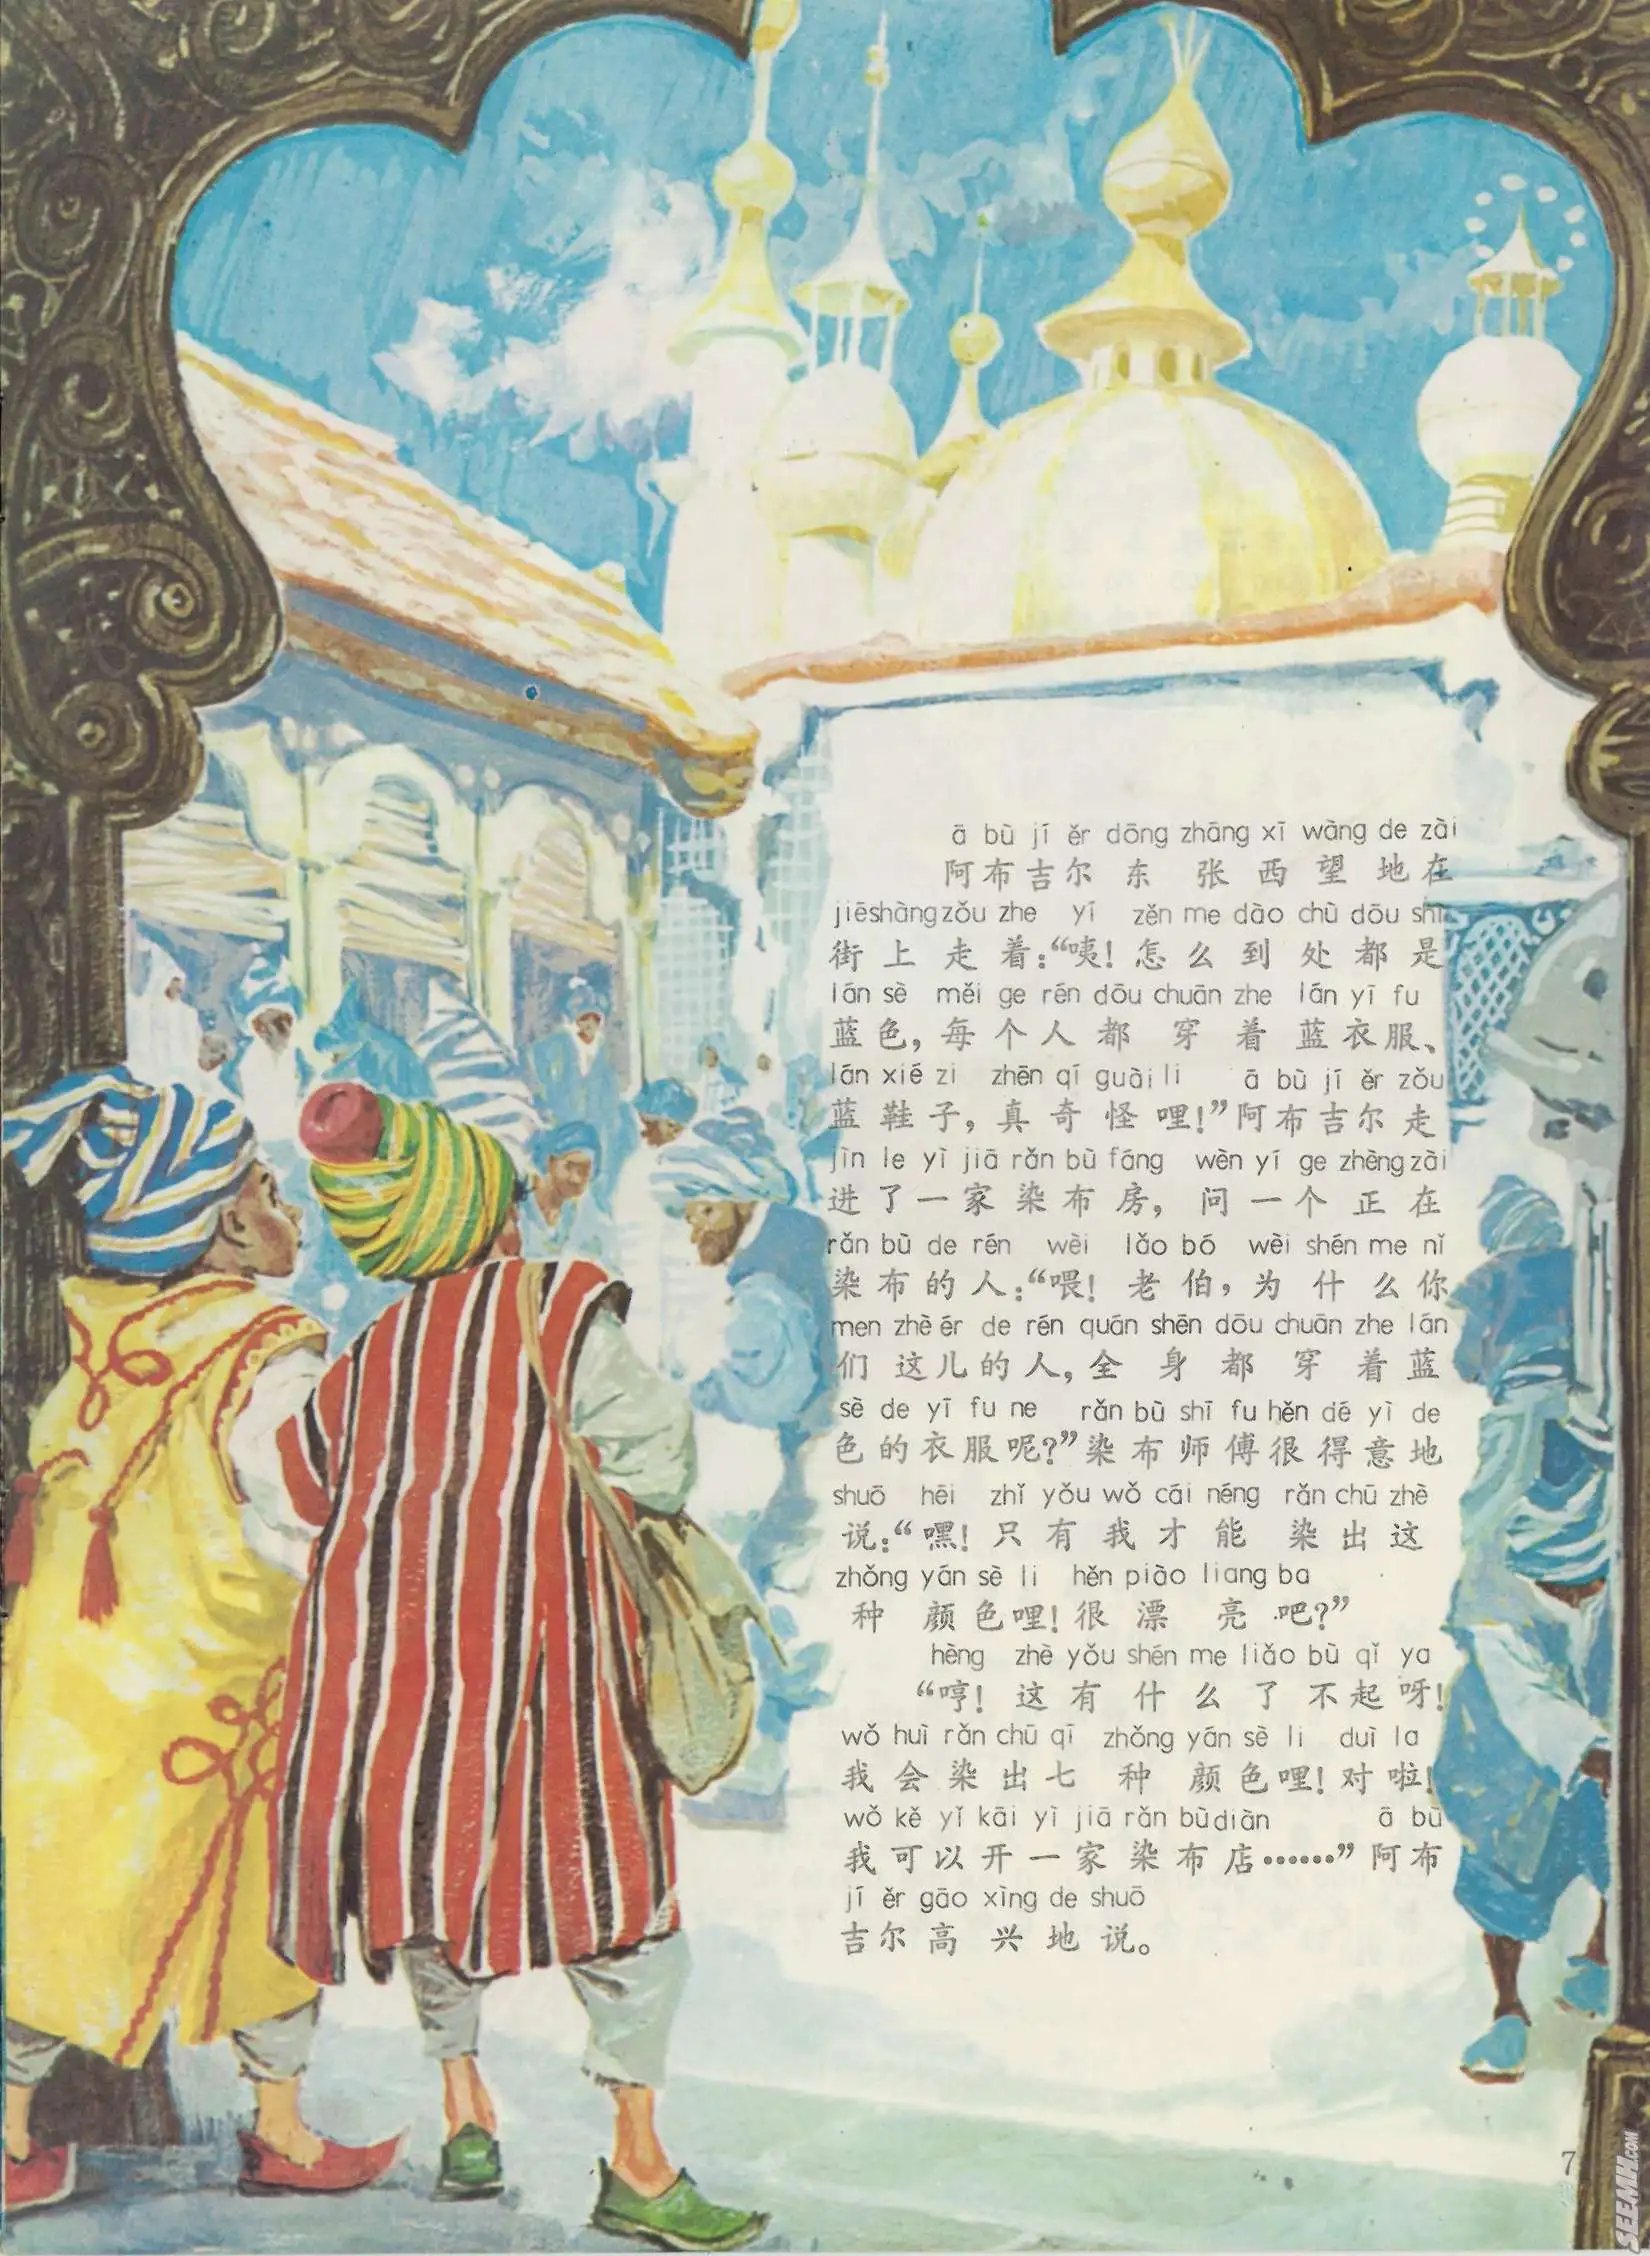 ā bù jí ěr dōng zhāng xī wàng de zài
阿布吉尔东张西望地在
jiēshàngzǒu zhe yí zěn me dào chù dōu shì
街上走着：“咦！怎么到处都是
lán sè měi ge rén dōu chuān zhe lán yī fu
蓝色，每个人都穿着蓝衣服、
lán xié zi zhēn qí guài li ā bù jí ěr zǒu
蓝鞋子，真奇怪哩！”阿布吉尔走
jìn le yì jiā rǎn bù fáng wèn yí ge zhèngzài
进了一家染布房，问一个正在
rǎn bù de rén wèi lǎo bó wèi shén me nǐ
染布的人：“喂！老伯，为什么你
men zhè ér de rén quán shēn dōu chuān zhe lán
们这儿的人，全身都穿着蓝
sè de yī fu ne rǎn bù shī fu hěn dé yì de
色的衣服呢？”染布师傅很得意地
shuō hēi zhǐ yǒu wǒ cái néng rǎn chū zhè
说：“嘿！只有我才能染出这
zhǒng yán sè li hěn piào liang ba
种颜色哩！很漂亮吧？”
hèng zhè yǒu shén me liǎo bù qǐ ya
“哼！这有什么了不起呀！
wǒ huì rǎn chū qī zhǒng yán sè li duì la
我会染出七种颜色哩！对啦！
wǒ kě yǐ kāi yì jiā rǎn bùdiàn ā bù
我可以开一家染布店……”阿布
jí ěr gāo xìng de shuō
吉尔高兴地说。
7
SEEMH.COM